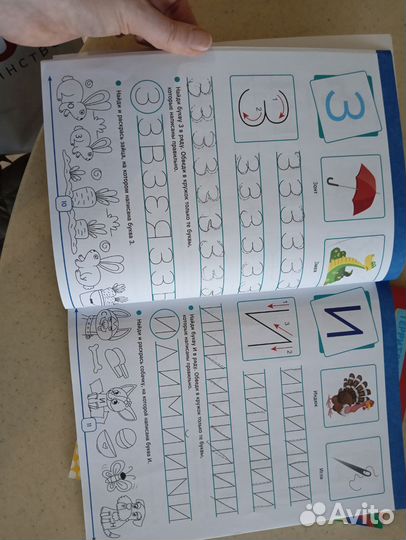 З
Зонт
Змей
1
2
З З З З З
З З З З З
Найди букву З в ряду. Обведи в кружок только те буквы,
которые написаны правильно.
Найди и раскрась зайца, на котором написана буква З.
10
И
Индюк
Игла
1
3
2
И И И И И
И И И И И
Найди букву И в ряду. Обведи в кружок только те буквы,
которые написаны правильно.
Найди и раскрась собачку, на которой написана буква И.
11
Avito